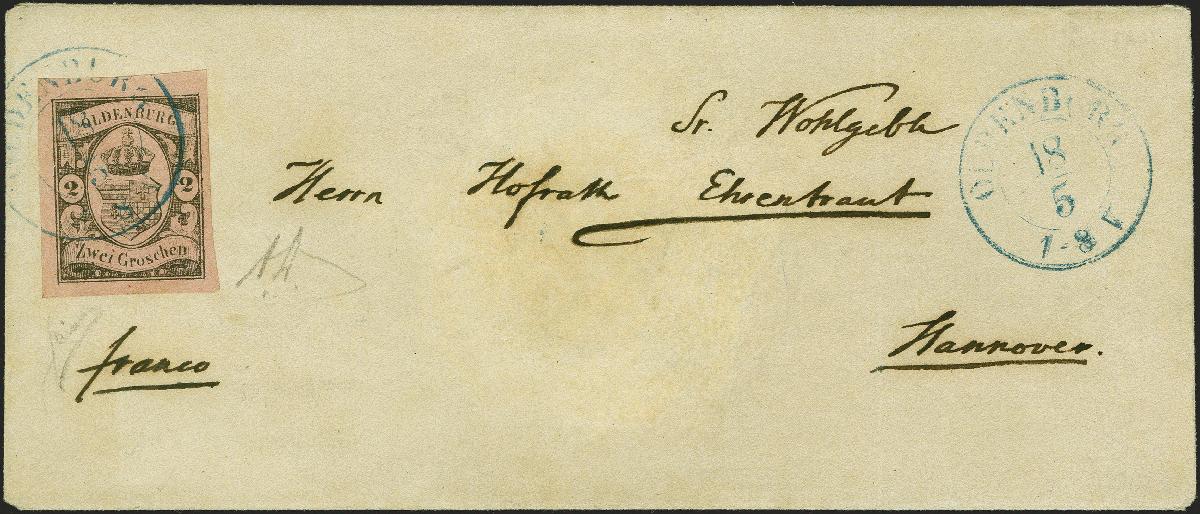 OLDENBURG
2 2
Zwei Groschen
Sr. Wohlgebh
Herrn Hofrath Ehrentraut
Hannover.
franco
OLDENBURG
18
5
OLDENBURG
18
5